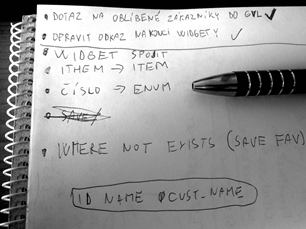 • DOTAZ NA OBLÍBENÉ ZÁKAZNÍKY DO GVL ✓
• OPRAVIT ODKAZ NA KONCI WIDGETY ✓
• WIDGET SPOJIT
ITHEM → ITEM
• ČÍSLO → ENUM
• SAVE
• WHERE NOT EXISTS (SAVE FAV)
ID NAME @CUST_NAME